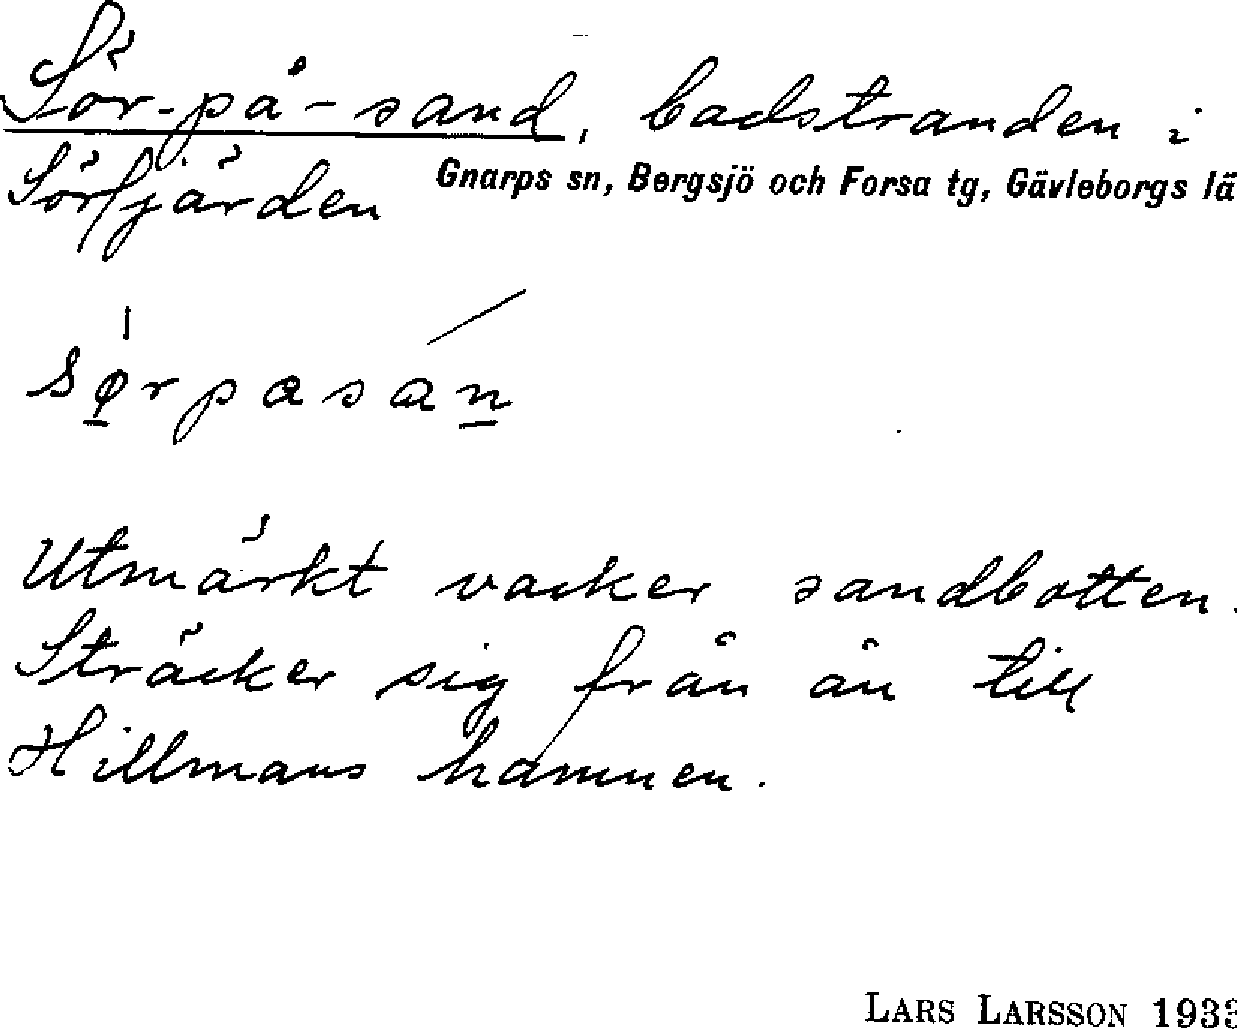 Sör-på-sand, badstranden i
Sörfjärden
Gnarps sn, Bergsjö och Forsa tg, Gävleborgs lä
sø̠rpasan̠
Utmärkt vacker sandbotten.
Sträcker sig från ån till
Hillmans hamnen.
LARS LARSSON 1933